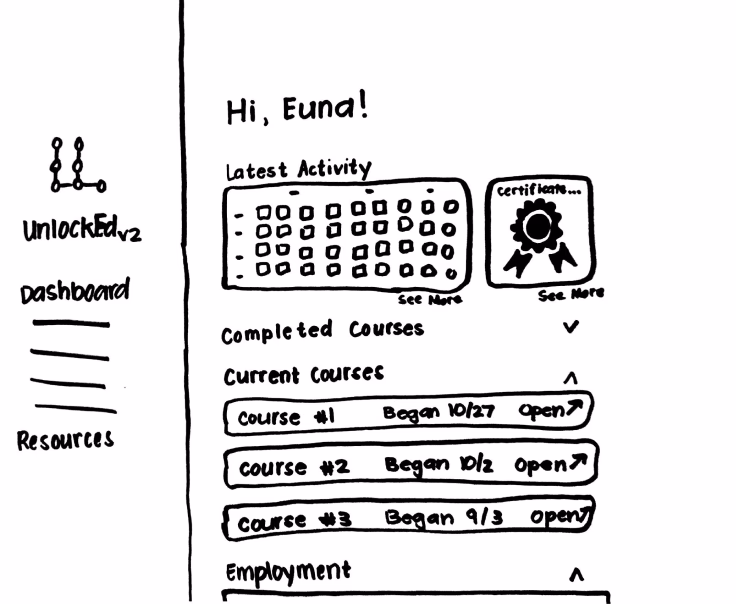 UnlockEdv2
Dashboard
Resources
Hi, Euna!
Latest Activity
certificate...
See More
See More
Completed Courses
Current Courses
Course #1 Began 10/27 Open
Course #2 Began 10/2 Open
Course #3 Began 9/3 Open
Employment